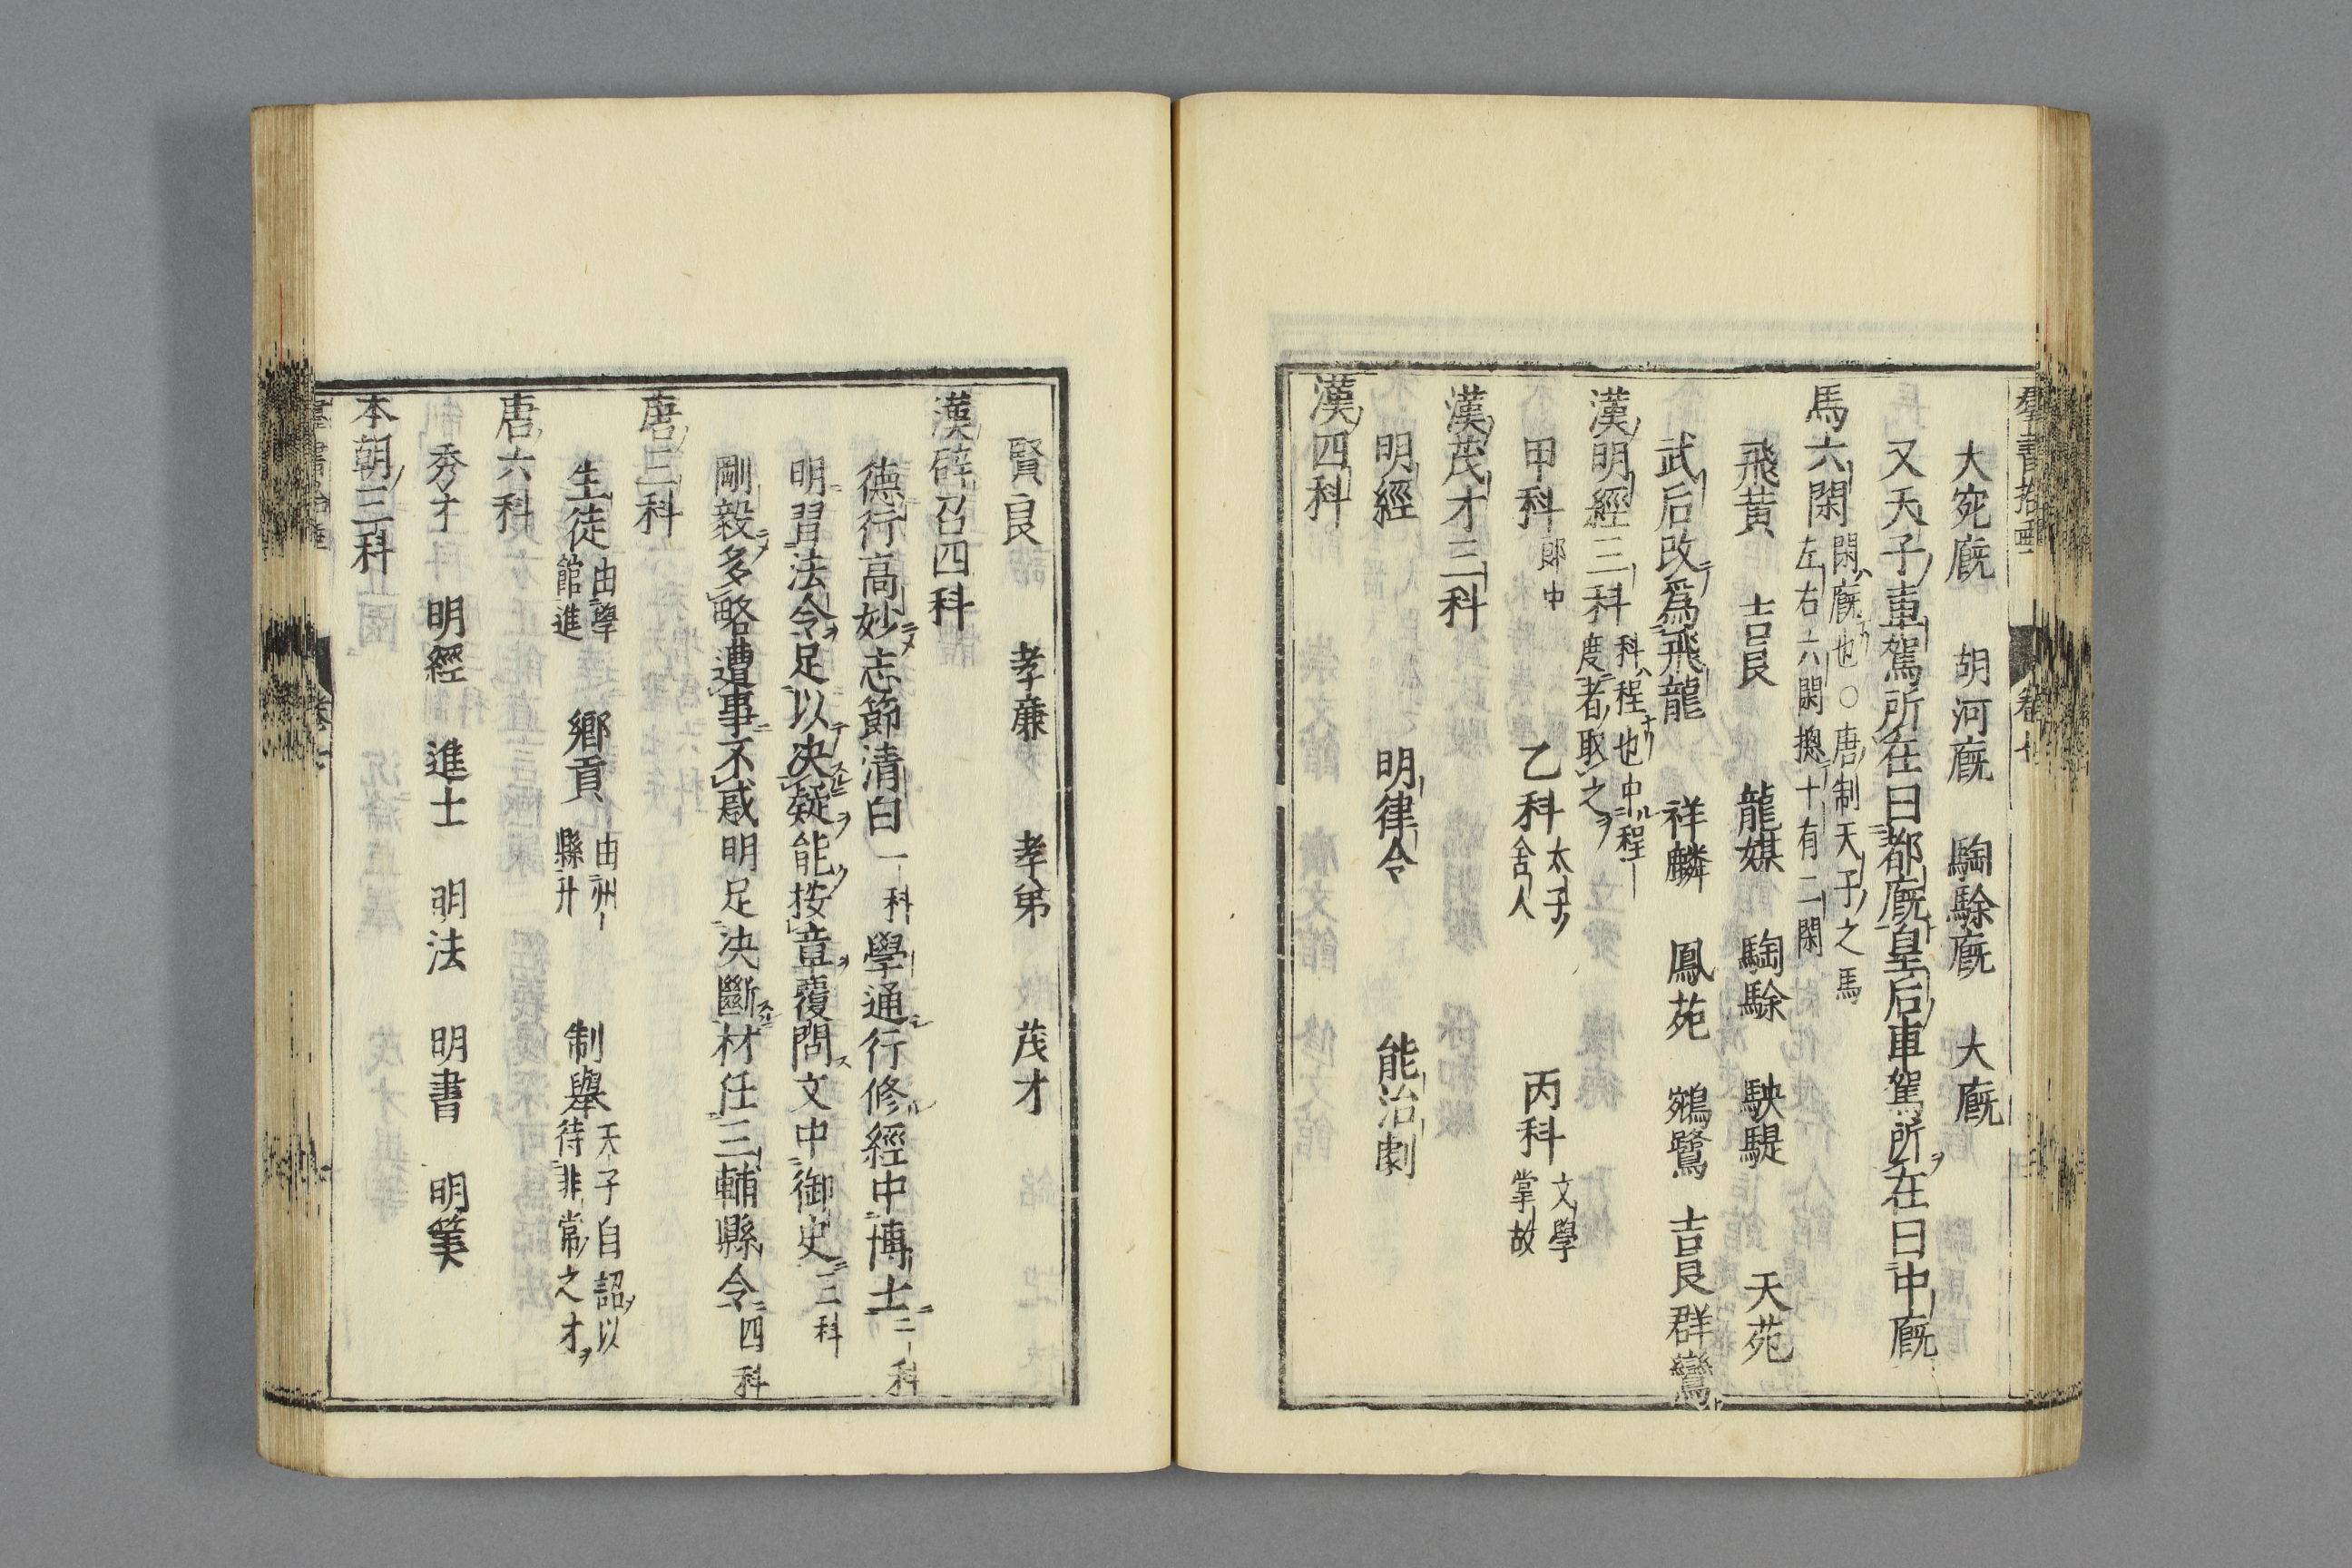 大宛廐　胡河廐　騊駼廐　大廐
又天子車駕所在曰都廐皇后車駕所在曰中廐
馬六閑　閑廐也○唐制天子之馬
左右六閑揔十有二閑
飛黄　吉良　龍媒　騊駼　駃騠　天苑
武后改爲飛龍　祥麟　鳳苑　鵷鷺　吉良　群鸞
漢明經三科　科程也中程
度者取之
甲科　郎中　乙科　太子舍人　丙科　文學掌故
漢茂才三科
明經　明律令　能治劇
漢四科
賢良　孝廉　孝弟　茂才
漢辟召四科
德行高妙志節清白一科學通行修經中博士二科
明習法令足以决疑能按章覆問文中御史三科
剛毅多略遭事不惑明足决斷材任三輔縣令四科
唐三科
生徒　由學館進　鄉貢　由州縣升　制舉　天子自詔以待非常之才
唐六科
秀才　明經　進士　明法　明書　明筭
本朝三科